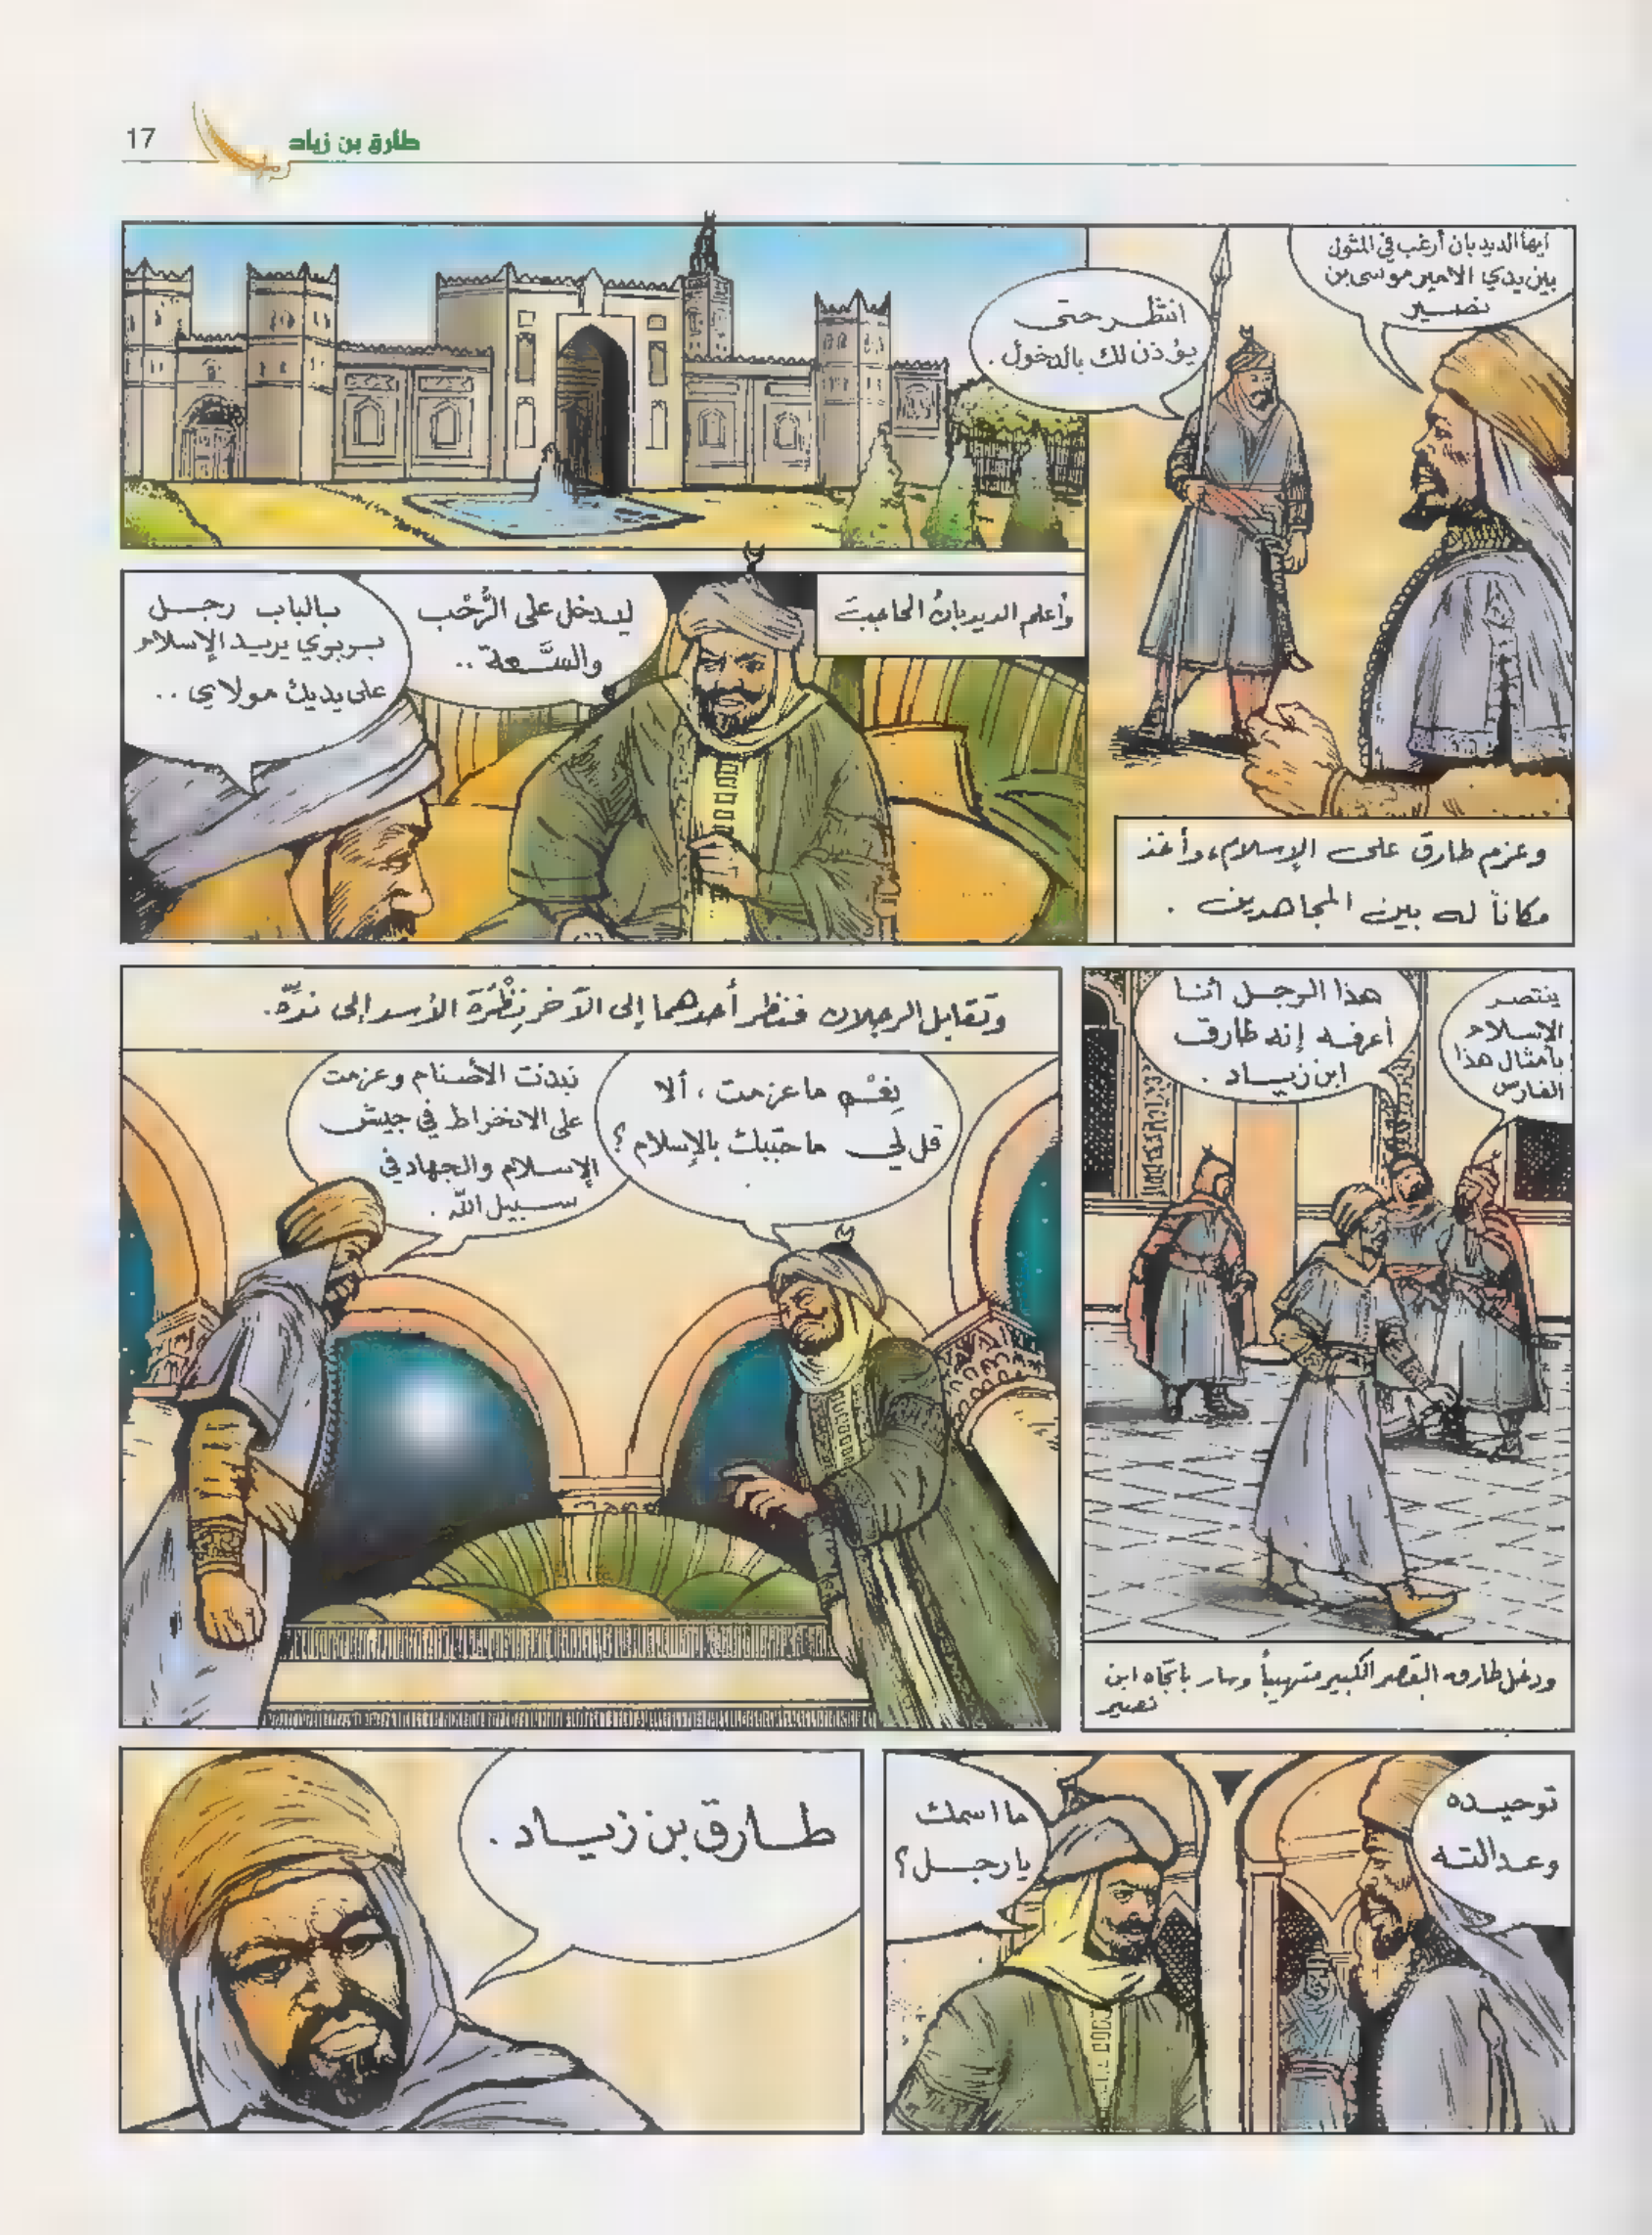 17
طارق بن زياد
أيها الديدبان أرغب في المثول
بين يدي الأمير موسى بن
نصير
انتظر حتى
يؤذن لك بالدخول .
وعزم طارق على الإسلام، وأخذ
مكاناً له بين المجاهدين .
وأعلم الديدبانُ الحاجبَ
ليدخل على الرُّحْب
والسَّعة ..
بالباب رجل
بربري يريد الإسلام
على يديك مولاي ..
ينتصر
الإسلام
بأمثال هذا
الفارس
هذا الرجل أنا
أعرفه إنه طارق
ابن زياد .
ودخل طارق القصر الكبير متهيباً وسار باتجاه ابن
نصير
وتقابل الرجلان فنظر أحدهما إلى الآخر نِظْرَةَ الأسد إلى ندّه.
نِعْم ما عزمت ، ألا
قل لي ما حببك بالإسلام ؟
نبذت الأصنام وعزمت
على الانخراط في جيش
الإسلام والجهاد في
سبيل الله .
توحيده
وعدالته
ما اسمك
يا رجل ؟
طارق بن زياد .